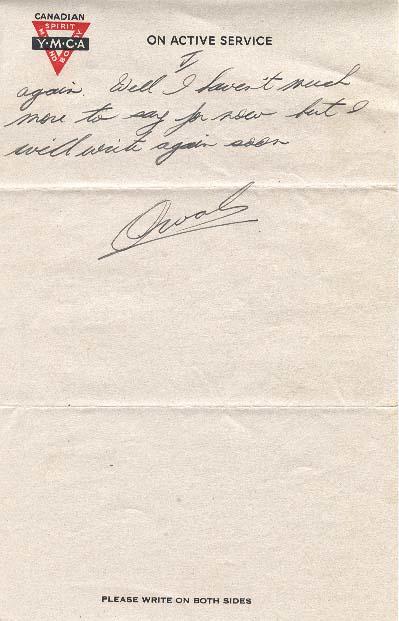 CANADIAN
SPIRIT
Y·M·C·A
MIND BODY
ON ACTIVE SERVICE
V
again. Well I haven't much
more to say for now but I
will write again soon
Orval
PLEASE WRITE ON BOTH SIDES